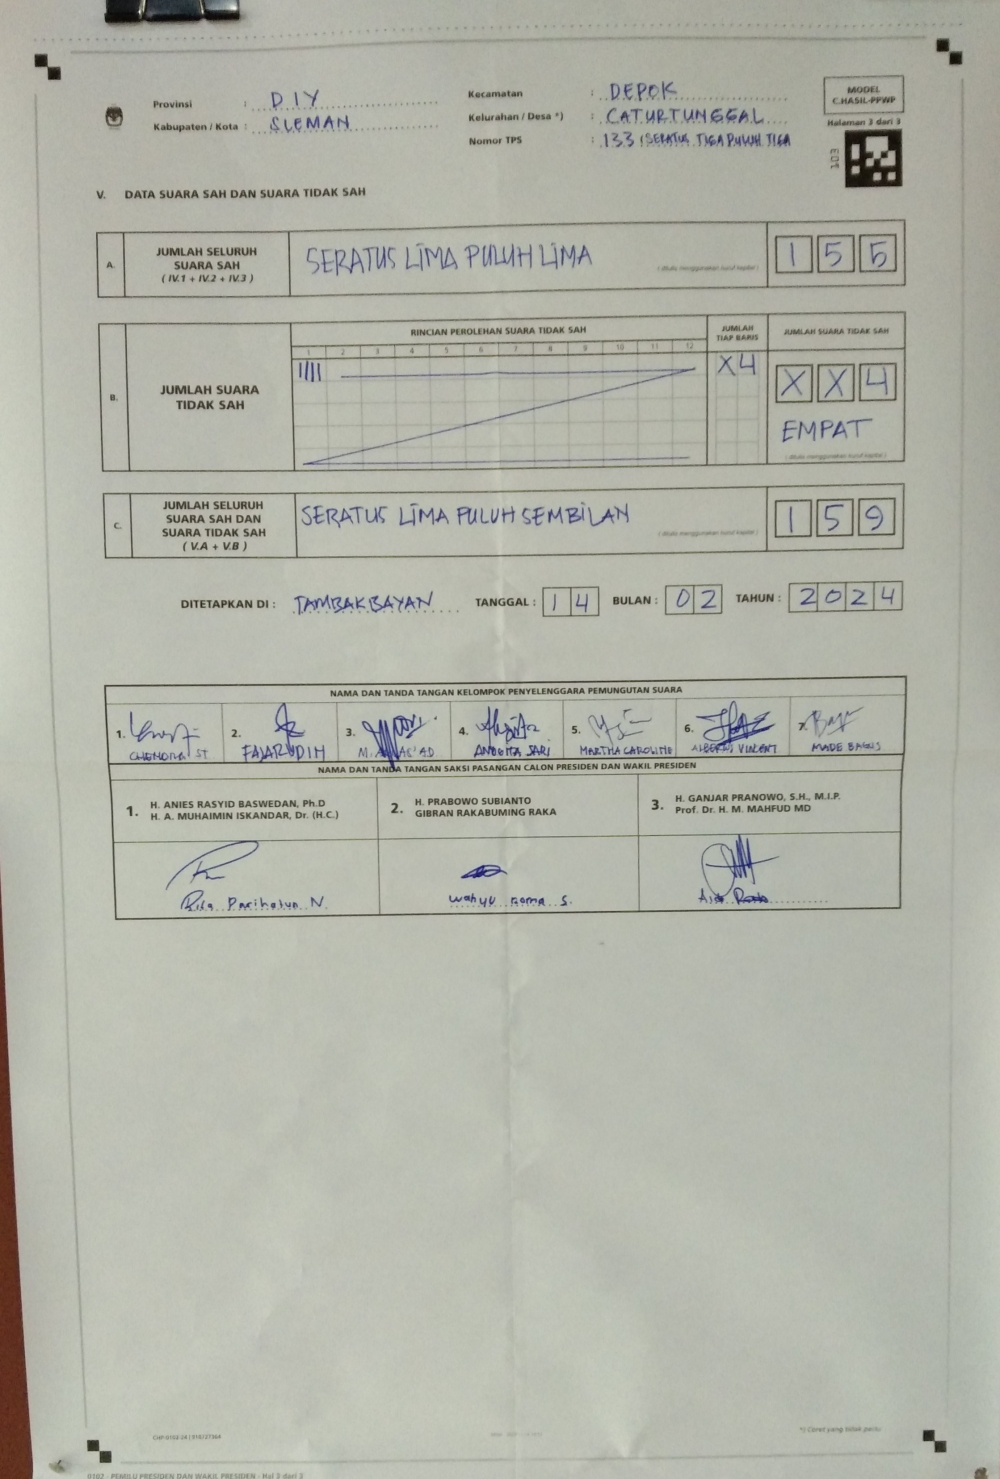 Provinsi : DIY
Kabupaten / Kota : SLEMAN
Kecamatan : DEPOK
Kelurahan / Desa *) : CATURTUNGGAL
Nomor TPS : 133 (SERATUS TIGA PULUH TIGA
MODEL
C.HASIL-PPWP
Halaman 3 dari 3
V. DATA SUARA SAH DAN SUARA TIDAK SAH
A. JUMLAH SELURUH SUARA SAH ( IV.1 + IV.2 + IV.3 )
SERATUS LIMA PULUH LIMA
( ditulis menggunakan huruf kapital )
1 5 5
B. JUMLAH SUARA TIDAK SAH
RINCIAN PEROLEHAN SUARA TIDAK SAH
1 2 3 4 5 6 7 8 9 10 11 12
JUMLAH TIAP BARIS
X4
JUMLAH SUARA TIDAK SAH
X X 4
EMPAT
( ditulis menggunakan huruf kapital )
C. JUMLAH SELURUH SUARA SAH DAN SUARA TIDAK SAH ( V.A + V.B )
SERATUS LIMA PULUH SEMBILAN
( ditulis menggunakan huruf kapital )
1 5 9
DITETAPKAN DI : TAMBAKBAYAN TANGGAL : 14 BULAN : 02 TAHUN : 2024
NAMA DAN TANDA TANGAN KELOMPOK PENYELENGGARA PEMUNGUTAN SUARA
1. 2. 3. 4. 5. 6. 7.
CHENDRA ST FAJARUDIH M. AS'AD ANGGITA SARI MARTHA CAROLINE VINCENT MADE BAGUS
NAMA DAN TANDA TANGAN SAKSI PASANGAN CALON PRESIDEN DAN WAKIL PRESIDEN
1. H. ANIES RASYID BASWEDAN, Ph.D
H. A. MUHAIMIN ISKANDAR, Dr. (H.C.)
2. H. PRABOWO SUBIANTO
GIBRAN RAKABUMING RAKA
3. H. GANJAR PRANOWO, S.H., M.I.P.
Prof. Dr. H. M. MAHFUD MD
N. Wahyu S.
*) Coret yang tidak perlu
0102 - PEMILU PRESIDEN DAN WAKIL PRESIDEN - Hal 3 dari 3